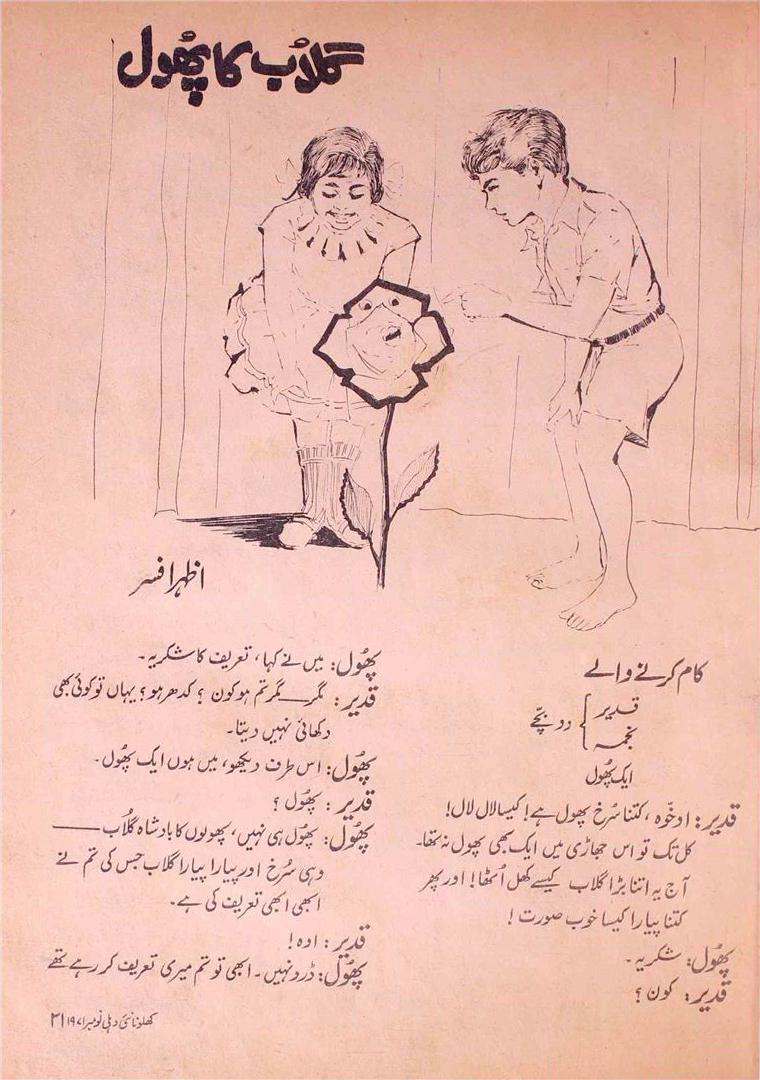 گلاب کا پھُول
اظہر افسر
کام کرنے والے
قدیر
نجمہ
دو بچّے
ایک پھُول
قدیر: اوخّوہ، کتنا سُرخ پھول ہے! کیسا لال لال!
کل تک تو اس جھاڑی میں ایک بھی پھول نہ تھا۔
آج یہ اتنا بڑا گلاب کیسے کھل اُٹھا! اور پھر
کتنا پیارا کیسا خوب صورت!
پھُول: شکریہ۔
قدیر: کون؟
پھُول: میں نے کہا، تعریف کا شکریہ۔
قدیر: مگر — مگر تم ہو کون؟ کدھر ہو؟ یہاں تو کوئی بھی
دکھائی نہیں دیتا۔
پھُول: اس طرف دیکھو، میں ہوں ایک پھُول۔
قدیر: پھُول؟
پھُول: پھُول ہی نہیں، پھولوں کا بادشاہ گلاب —
وہی سُرخ اور پیارا پیارا گلاب جس کی تم نے
ابھی ابھی تعریف کی ہے۔
قدیر: اوہ!
پھُول: ڈرو نہیں۔ ابھی تو تم میری تعریف کر رہے تھے
کھلونا نئی دہلی نومبر ۱۹۷۱ ۲۱